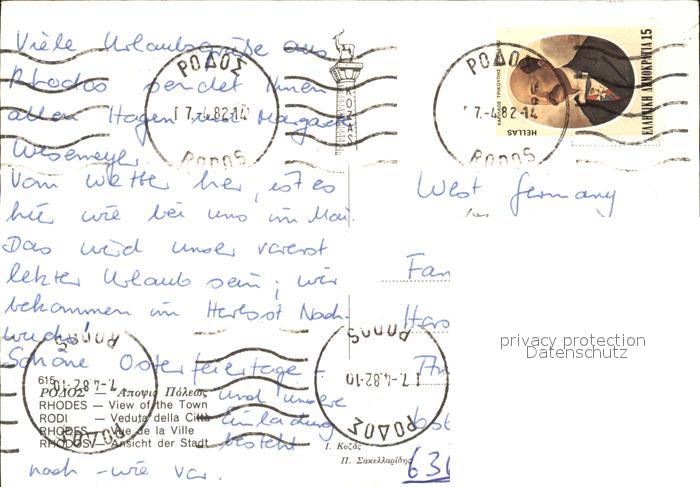 Viele Urlaubsgrüße aus
Rhodos sendet Ihnen
allen Hagen und Margarete
Wesemeyer.
Vom Wetter her, ist es
hier wie bei uns im Mai.
Das wird unser vorerst
letzter Urlaub sein; wir
bekommen im Herbst Nach-
wuchs!
Schöne Osterfeiertage –
und unsere
Einladung
besteht
nach -wie vor.
615
ΡΟΔΟΣ — Ἄποψις Πόλεως
RHODES — View of the Town
RODI — Veduta della Città
RHODES — Vue de la Ville
RHODOS — Ansicht der Stadt
Ι. Κοζᾶς
Π. Σακελλαρίδης
ΚΟΖΑΣ
ΡΟΔΟΣ
17.-4.82-14
RODOS
ΡΟΔΟΣ
17.-4.82-14
RODOS
RODOS
17.-4.82-10
ΡΟΔΟΣ
RODOS
17.-4.82-10
ΡΟΔΟΣ
HELLAS
ΕΛΛΗΝΙΚΗ ΔΗΜΟΚΡΑΤΙΑ 15
West Germany
Fam
631
privacy protection
Datenschutz